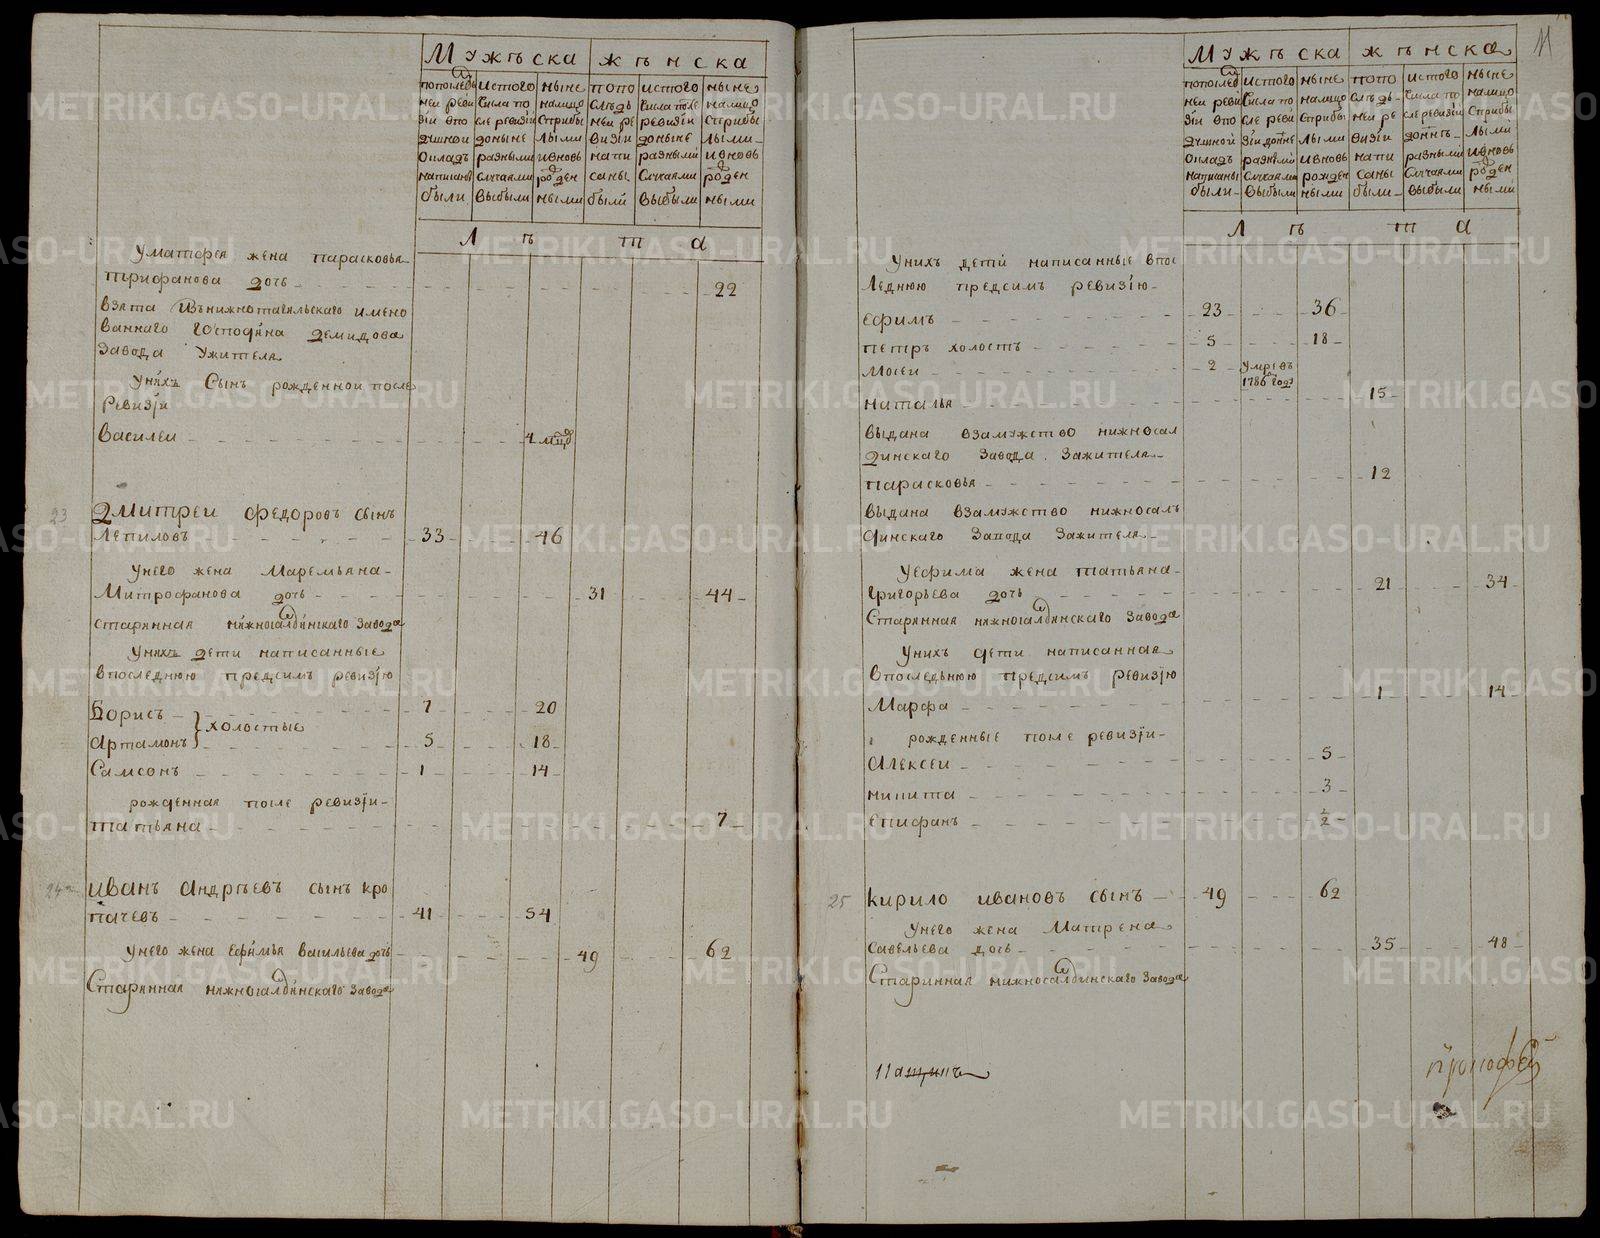 Мужъска жѣнска
пополед
ней реви
зїи впо
душной
окладъ
написаны
были
истого
числа по
сле ревизїи
доныне
разными
случаями
выбыли
ныне
налицо
сприбы
лыми
ивновь
рожден
ными
попо
слѣдь
ней ре
визїи
напи
саны
были
истого
числа после
ревизїи
доныне
разными
случаями
выбыли
ныне
налицо
сприбы
лыми
ивновь
рожден
ными
Л ѣ т а
Уматфея жена парасковья
трифанова дочь 22
взята Извнижнотагильскаго имено
ваннаго Господина демидова
завода Ужителя
Унихъ Сынъ рожденной после
Ревизїи
василеи 4 мцов
23
Дмитреи федоровъ сынъ
Лепиловъ 33 46
Унего жена Маремьяна
Митрофанова дочь 31 44
старинная нижносалдинскаго завода
Унихъ дети написанные
впоследнюю предсимъ ревизїю
Борисъ 7 20
холостые
Артамонъ 5 18
Самсонъ 1 14
рожденная после ревизїи
татьяна 7
24
иванъ андрѣевъ сынъ кро
пачевъ 41 54
Унего жена Ефимья васильева дочь 49 62
Старинная нижносалдинскаго завода
11
Мужъска жѣнска
пополед
ней реви
зїи впо
душной
окладъ
написаны
были
истого
числа по
сле реви
зїи доныне
разными
случаями
выбыли
ныне
налицо
сприбы
лыми
ивновь
рожден
ными
попо
слѣдь
ней ре
визїи
напи
саны
были
истого
числа по
сле ревизїи
донынѣ
разными
случаями
выбыли
ныне
налицо
сприбы
лыми
ивновь
рожден
ными
Л ѣ т а
Унихъ дети написанные впос
Леднюю предсимъ ревизїю
ефимъ 23 36
петръ холостъ 5 18
Мосеи 2 умре въ
1786 году
наталья 15
выдана взамужство нижносал
динскаго завода зажителя
парасковья 12
выдана взамужство нижносалъ
динскаго завода зажителя
Уефима жена татьяна
григорьева дочь 21 34
Старинная нижносалдинскаго завода
Унихъ дети написанная
впоследьнюю предсимъ ревизїю
Марфа 1 14
рожденные после ревизїи
Алексеи 5
никита 3
епифанъ 1/2
25
кирило ивановъ сынъ 49 62
Унего жена Матрена
савельева дочь 35 48
Старинная нижносалдинскаго завода
прокофей
METRIKI.GASO-URAL.RU